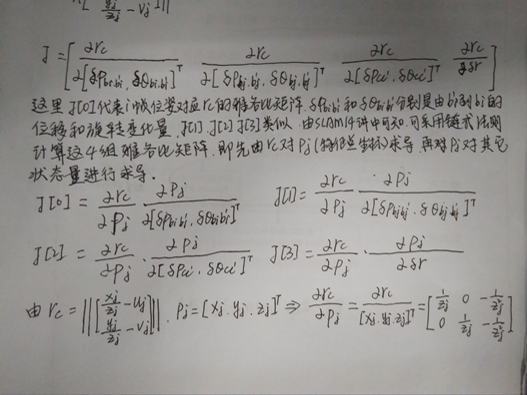 [yj/zj - vj]||
J = [∂rc/∂[δpbibi', δθbibi']^T  ∂rc/∂[δpbjbj', δθbjbj']^T  ∂rc/∂[δpcc', δθcc']^T  ∂rc/∂δr]
这里J[0]代表i帧位姿对应rc的雅各比矩阵. δpbibi'和δθbibi'分别是由bi到bi'的
位移和旋转变化量, J[1] J[2] J[3]类似. 由SLAM十四讲中可知, 可采用链式法则
计算这4组雅各比矩阵. 即先由rc对Pj(特征点坐标)求导, 再对Pj对其它
状态量进行求导.
J[0] = ∂rc/∂Pj · ∂Pj/∂[δpbibi', δθbibi']^T  J[1] = ∂rc/∂Pj · ∂Pj/∂[δpbjbj', δθbjbj']^T
J[2] = ∂rc/∂Pj · ∂Pj/∂[δpcc', δθcc']^T  J[3] = ∂rc/∂Pj · ∂Pj/∂δr
由 rc = ||[xj/zj - uj; yj/zj - vj]||, Pj = [xj, yj, zj]^T ⇒ ∂rc/∂Pj = ∂rc/[xj, yj, zj]^T = [1/zj 0 -1/zj²; 0 1/zj -1/zj²]